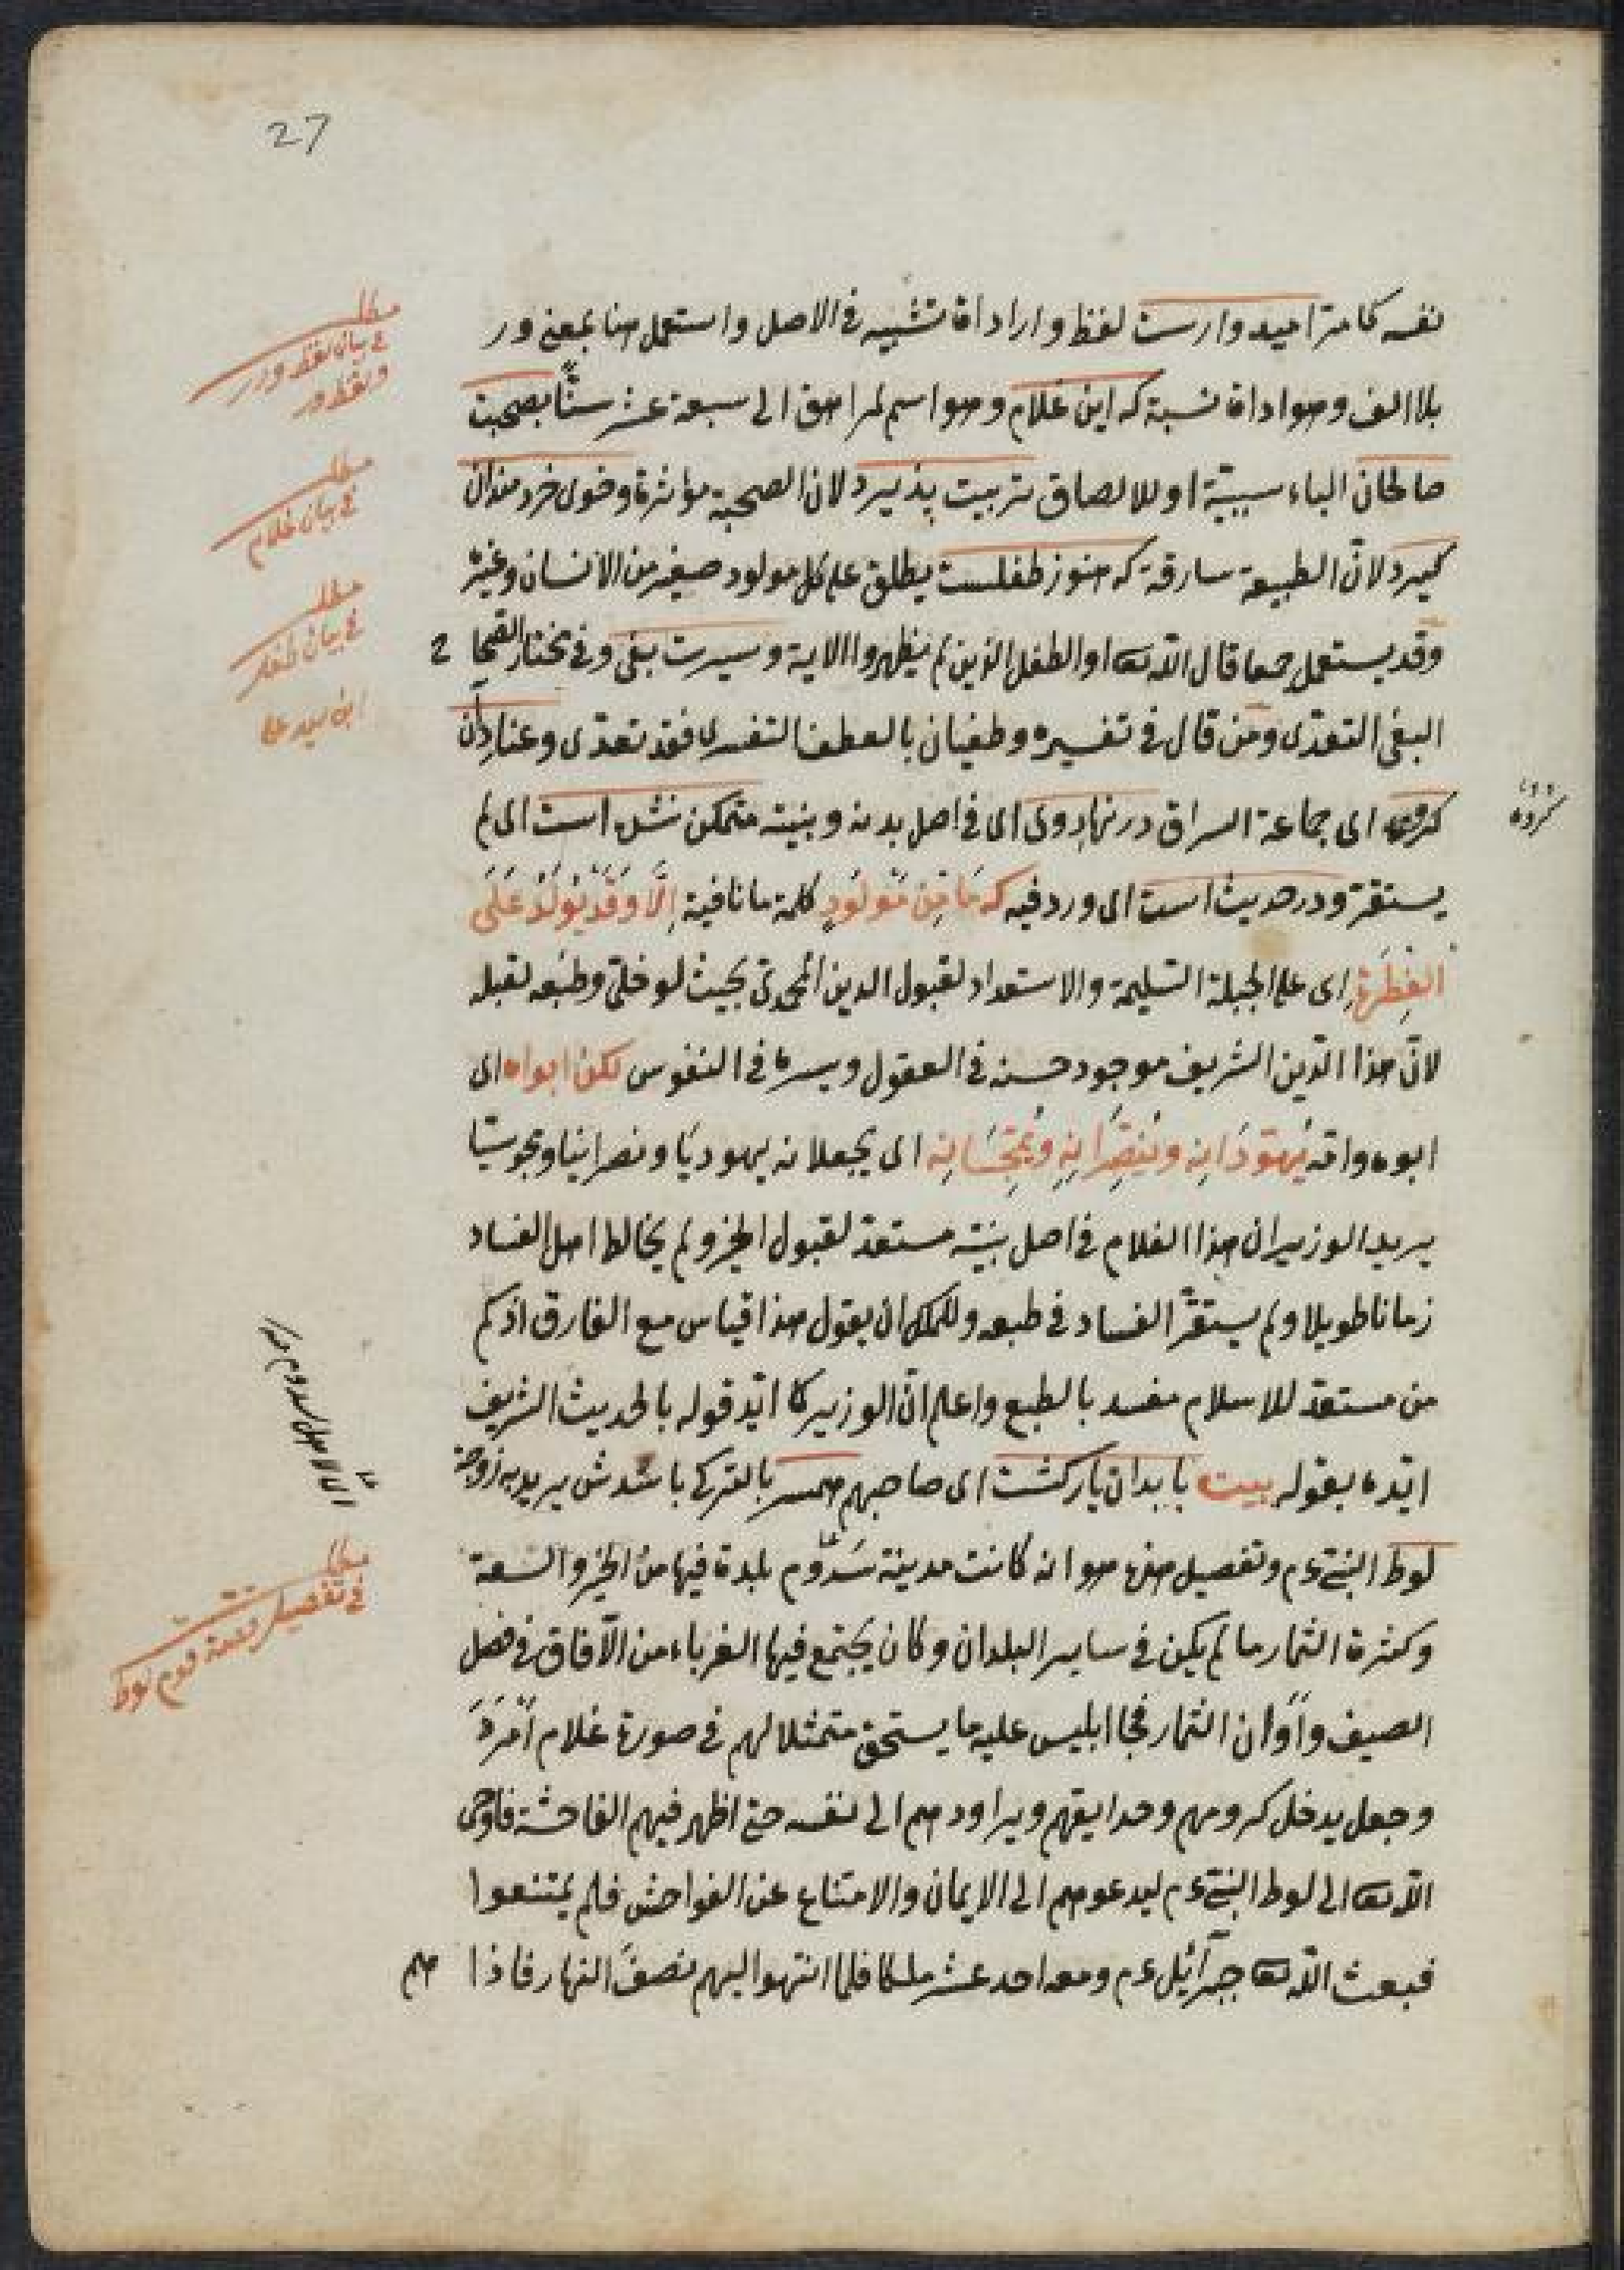 27
نفسه كما مرّ اميد وارست لفظ وار اداة تشبيه فى الاصل واستعمل هنا بمعنى ور
بلا الف وهو اداة نسبة كه اين غلام وهو اسم لمراهق الى سبعة عشر سنّا بصحبت
صالحان الباء سببيّة او للالصاق تربيت پذيرد لان الصحبة مؤثرة وخوى خردمندان
گيرد لانّ الطبيعة سارقة كه هنوز طفلست يطلق على كل مولود صغير من الانسان وغيره
وقد يستعمل جمعا قال الله تعا او الطفل الذين لم يظهروا الاية وسيرت بغى وفى مختار الصحاح
البغى التعدّى ومن قال فى تفسيره وطغيان بالعطف التفسيرى فقد تعدّى وعناد آن
كروه اى جماعة السراق در نهاد وى اى فى اصل بدنه وبنيته متمكن نشده است اى لم
يستقرّ ودر حديث است اى ورد فيه كه مَا مِنْ مَوْلُودٍ كلمة ما نافية اِلَّا وَقَدْ يُولَدُ عَلَى
الفِطْرَةِ اى على الجبلة السّليمة والاستعداد لقبول الدين المحمدىّ بحيث لو خلى وطبعه لقبله
لانّ هذا الدّين الشريف موجود حسنه فى العقول ويسره فى النفوس لكن ابواه اى
ابوه وامّه يُهَوِّدَانِه ويُنَصِّرَانِه ويُمَجِّسَانِه اى يجعلانه يهوديّا ونصرانيا ومجوسيّا
يريد الوزير ان هذا الغلام فى اصل بنيته مستعدّ لقبول الخير ولم يخالط اهل الفساد
زمانا طويلا ولم يستقرّ الفساد فى طبعه وللملك ان يقول هذا قياس مع الفارق اذ كم
من مستعدّ للاسلام مفسد بالطبع واعلم انّ الوزير كما ايّد قوله بالحديث الشريف
ايّده بقوله بيت با بدان يار كشت اى صاحبهم همسر بالتركى باشدش يريد به زوجة
لوط النبىّ ءم وتفصيل هذه هو انه كانت مدينة سَدُوم بلدة فيها من الخير والسعة
وكثرة الثمار ما لم يكن فى ساير البلدان وكان يجتمع فيها الغرباء من الآفاق فى فصل
الصيف واَوان الثمار فجا ابليس عليه ما يستحق متمثلا لهم فى صورة غلام اَمْرَدَ
وجعل يدخل كرومهم وحدايقهم ويراودهم الى نفسه حتى اظهر فيهم الفاحشة فاوحى
الله تعا الى لوط النبىّ ءم ليدعوهم الى الايمان والامتناع عن الفواحش فلم يمتنعوا
فبعث الله تعا جبرآئيل ءم ومعه احد عشر ملكا فلما انتهوا اليهم نصفَ النهار فاذا
هم
مطلب
فى بيان لفظ ور
ولفظ
مطلب
فى بيان غلام
مطلب
فى بيان طفل
ابن سيد على
كروه
مطلب
فى تفصيل قصة قوم لوط